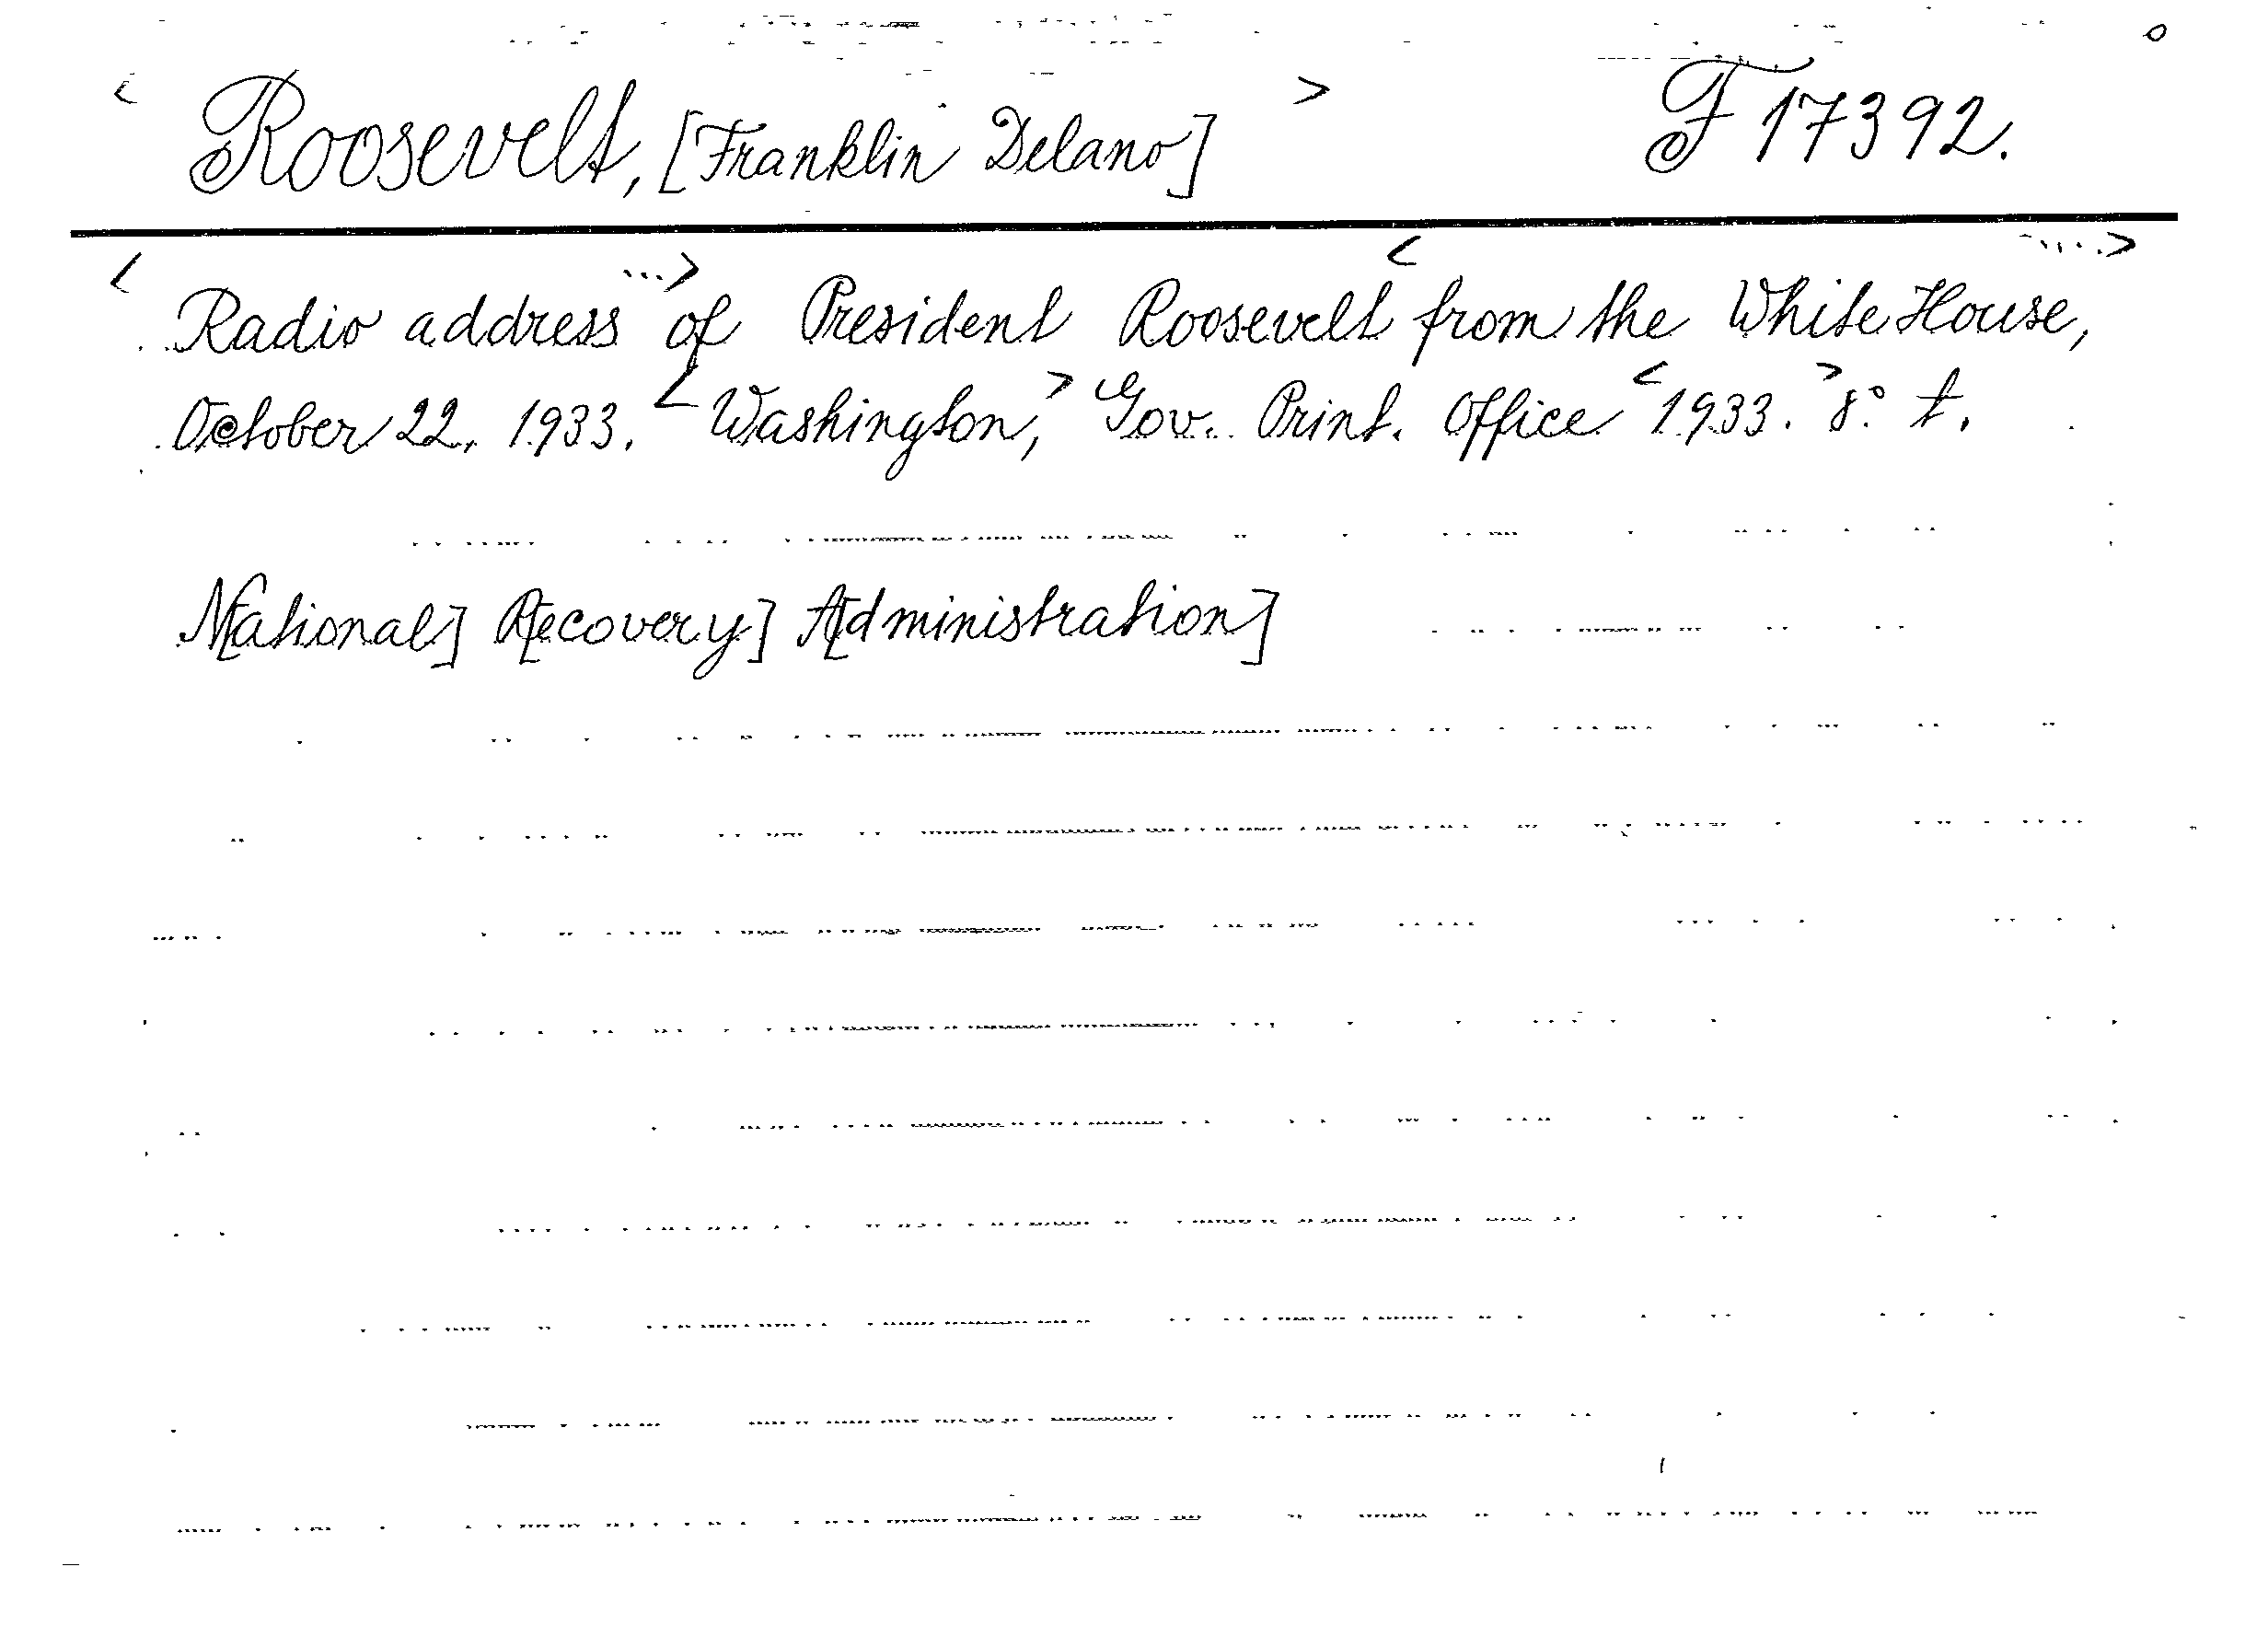 < Roosevelt, [Franklin Delano] > F 17392.
< Radio address ...> of President Roosevelt < from the White House, ....>
October 22, 1933. < Washington, > Gov. Print. Office < 1933. > 8° t.
N[ational] R[ecovery] A[dministration]